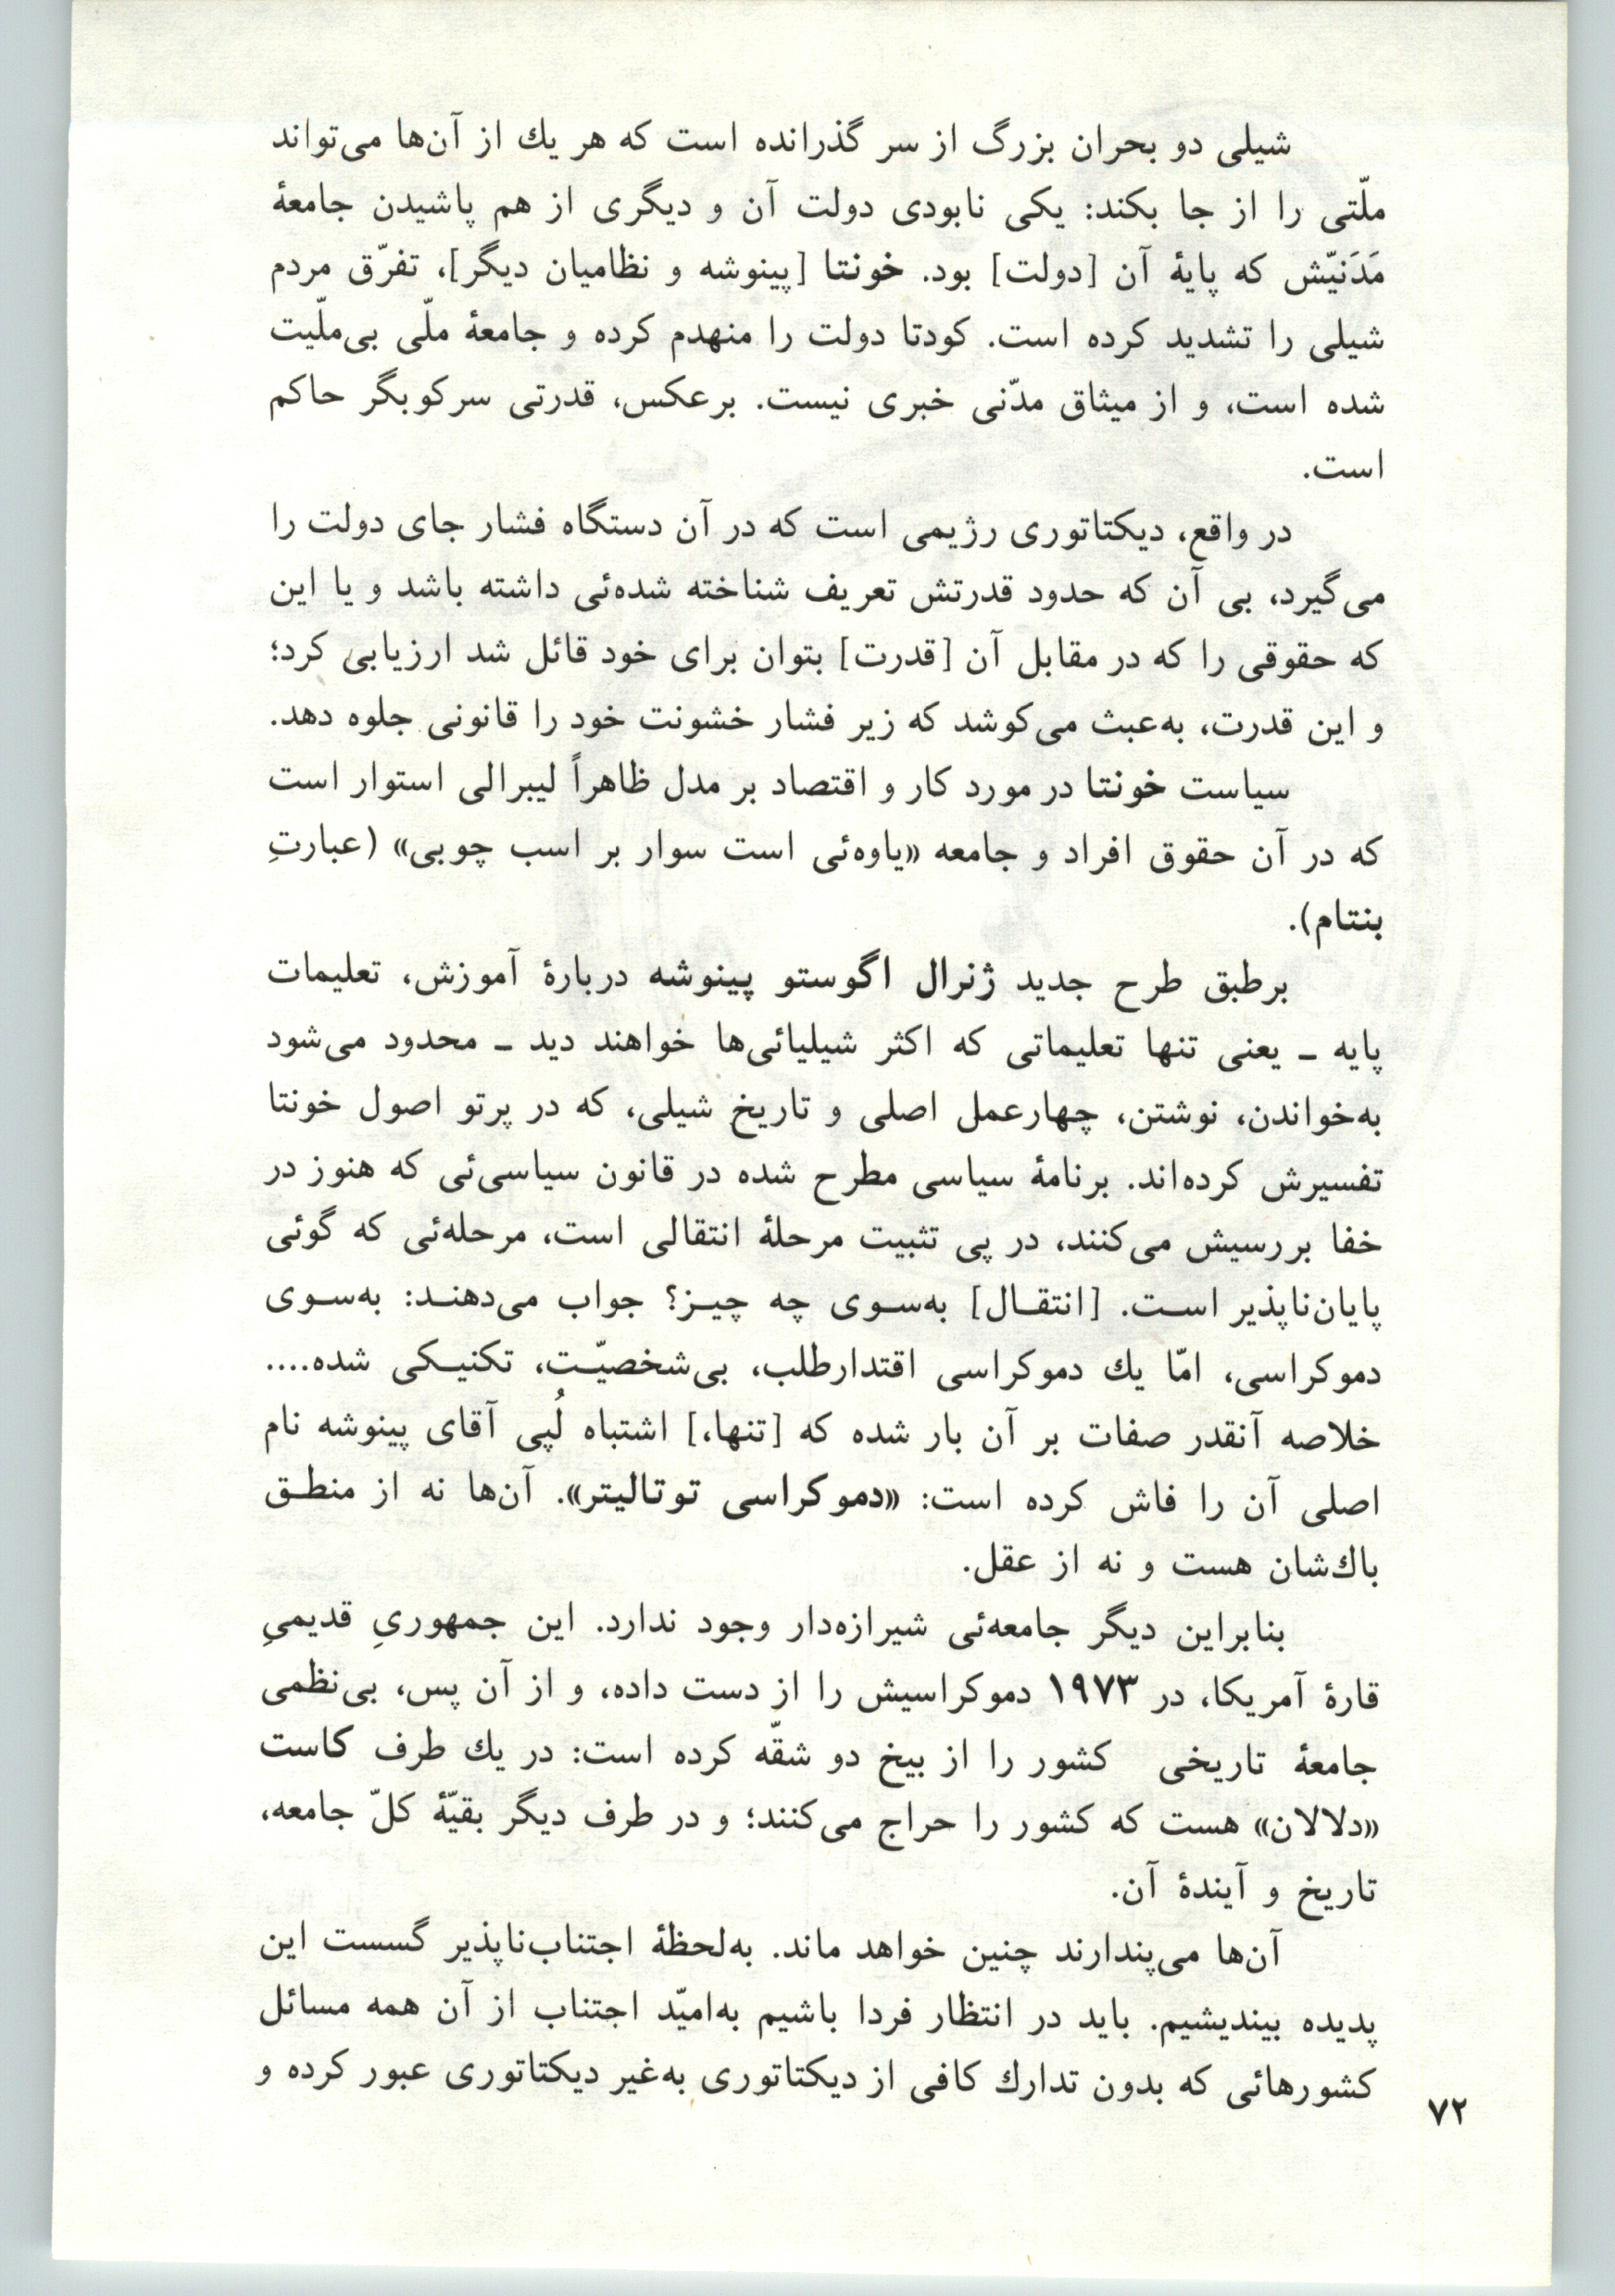 شیلی دو بحران بزرگ از سر گذرانده است که هر یك از آن‌ها می‌تواند
ملّتی را از جا بکند: یکی نابودی دولت آن و دیگری از هم پاشیدن جامعهٔ
مَدَنیّش که پایهٔ آن [دولت] بود. خونتا [پینوشه و نظامیان دیگر]، تفرّق مردم
شیلی را تشدید کرده است. کودتا دولت را منهدم کرده و جامعهٔ ملّی بی‌ملّیت
شده است، و از میثاق مدّنی خبری نیست. برعکس، قدرتی سرکوبگر حاکم
است.
در واقع، دیکتاتوری رژیمی است که در آن دستگاه فشار جای دولت را
می‌گیرد، بی آن که حدود قدرتش تعریف شناخته شده‌ئی داشته باشد و یا این
که حقوقی را که در مقابل آن [قدرت] بتوان برای خود قائل شد ارزیابی کرد؛
و این قدرت، به‌عبث می‌کوشد که زیر فشار خشونت خود را قانونی جلوه دهد.
سیاست خونتا در مورد کار و اقتصاد بر مدل ظاهراً لیبرالی استوار است
که در آن حقوق افراد و جامعه «یاوه‌ئی است سوار بر اسب چوبی» (عبارتِ
بنتام).
برطبق طرح جدید ژنرال اگوستو پینوشه دربارهٔ آموزش، تعلیمات
پایه ـ یعنی تنها تعلیماتی که اکثر شیلیائی‌ها خواهند دید ـ محدود می‌شود
به‌خواندن، نوشتن، چهارعمل اصلی و تاریخ شیلی، که در پرتو اصول خونتا
تفسیرش کرده‌اند. برنامهٔ سیاسی مطرح شده در قانون سیاسی‌ئی که هنوز در
خفا بررسیش می‌کنند، در پی تثبیت مرحلهٔ انتقالی است، مرحله‌ئی که گوئی
پایان‌ناپذیر است. [انتقال] به‌سوی چه چیز؟ جواب می‌دهند: به‌سوی
دموکراسی، امّا یك دموکراسی اقتدارطلب، بی‌شخصیّت، تکنیکی شده....
خلاصه آنقدر صفات بر آن بار شده که [تنها،] اشتباه لُپی آقای پینوشه نام
اصلی آن را فاش کرده است: «دموکراسی توتالیتر». آن‌ها نه از منطق
باك‌شان هست و نه از عقل.
بنابراین دیگر جامعه‌ئی شیرازه‌دار وجود ندارد. این جمهوریِ قدیمیِ
قارهٔ آمریکا، در ۱۹۷۳ دموکراسیش را از دست داده، و از آن پس، بی‌نظمی
جامعهٔ تاریخی کشور را از بیخ دو شقّه کرده است: در یك طرف کاست
«دلالان» هست که کشور را حراج می‌کنند؛ و در طرف دیگر بقیّهٔ کلّ جامعه،
تاریخ و آیندهٔ آن.
آن‌ها می‌پندارند چنین خواهد ماند. به‌لحظهٔ اجتناب‌ناپذیر گسست این
پدیده بیندیشیم. باید در انتظار فردا باشیم به‌امیّد اجتناب از آن همه مسائل
کشورهائی که بدون تدارك کافی از دیکتاتوری به‌غیر دیکتاتوری عبور کرده و
۷۲